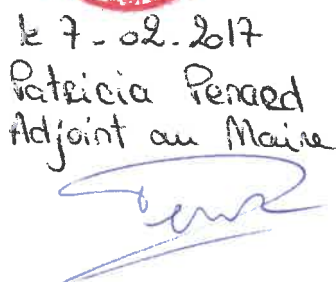 le 7-02-2017
Patricia Penard
Adjoint au Maire